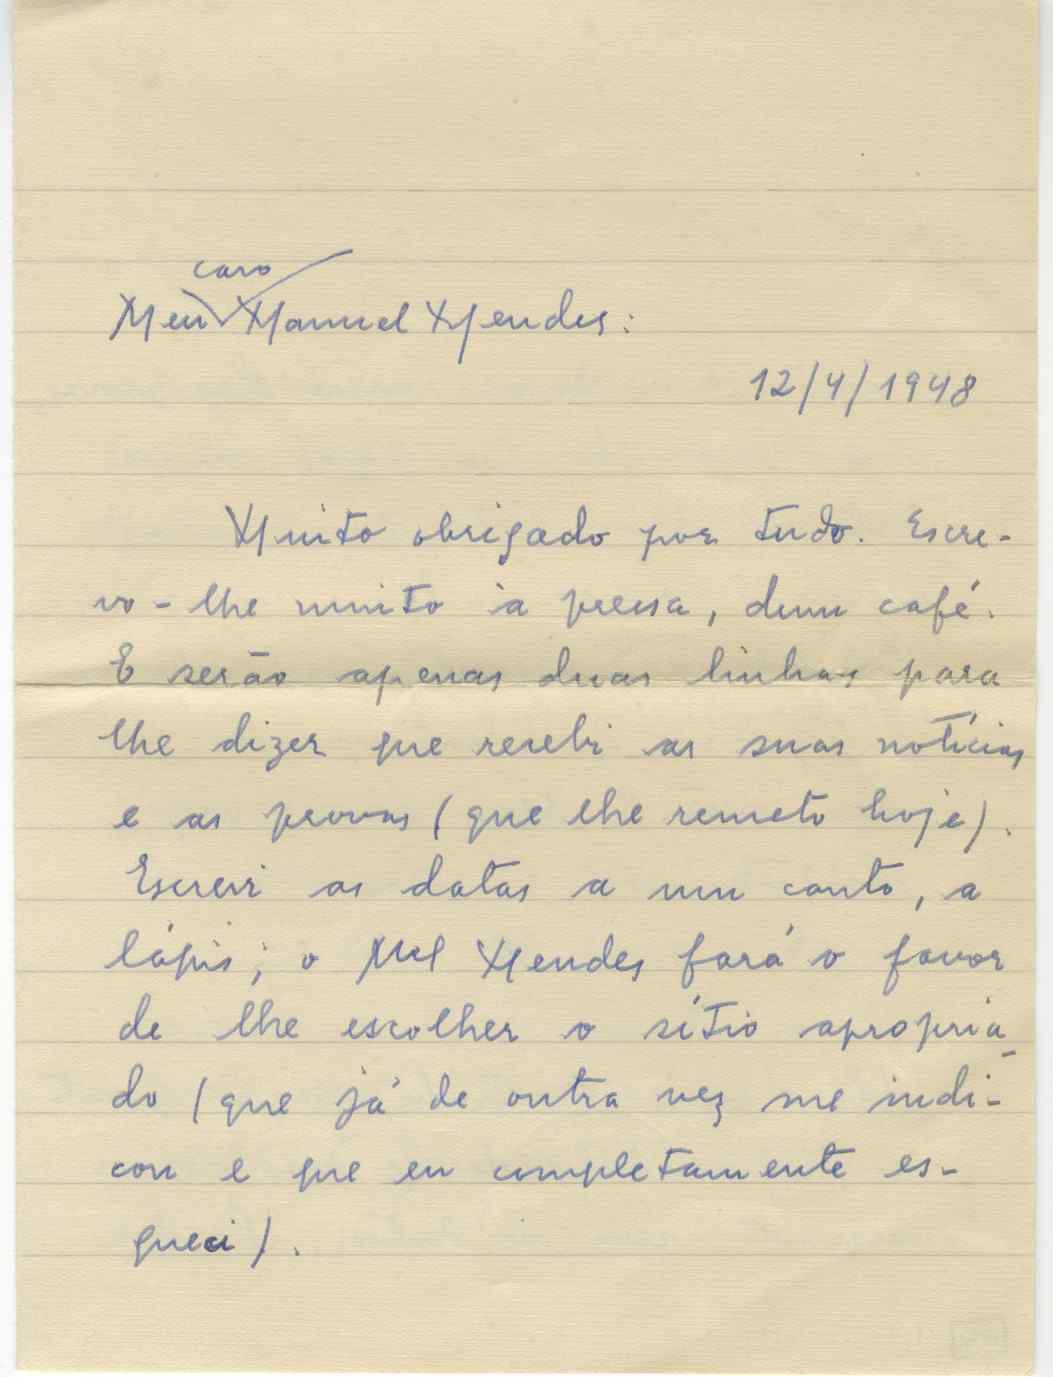 Meu caro Manuel Mendes:
12/4/1948
Muito obrigado por tudo. Escre-
vo-lhe muito à pressa, dum café.
E serão apenas duas linhas para
lhe dizer que recebi as suas notícias
e as provas (que lhe remeto hoje).
Escrevi as datas a um canto, a
lápis; o Mel Mendes fará o favor
de lhe escolher o sítio apropria-
do (que já de outra vez me indi-
cou e que eu completamente es-
queci).